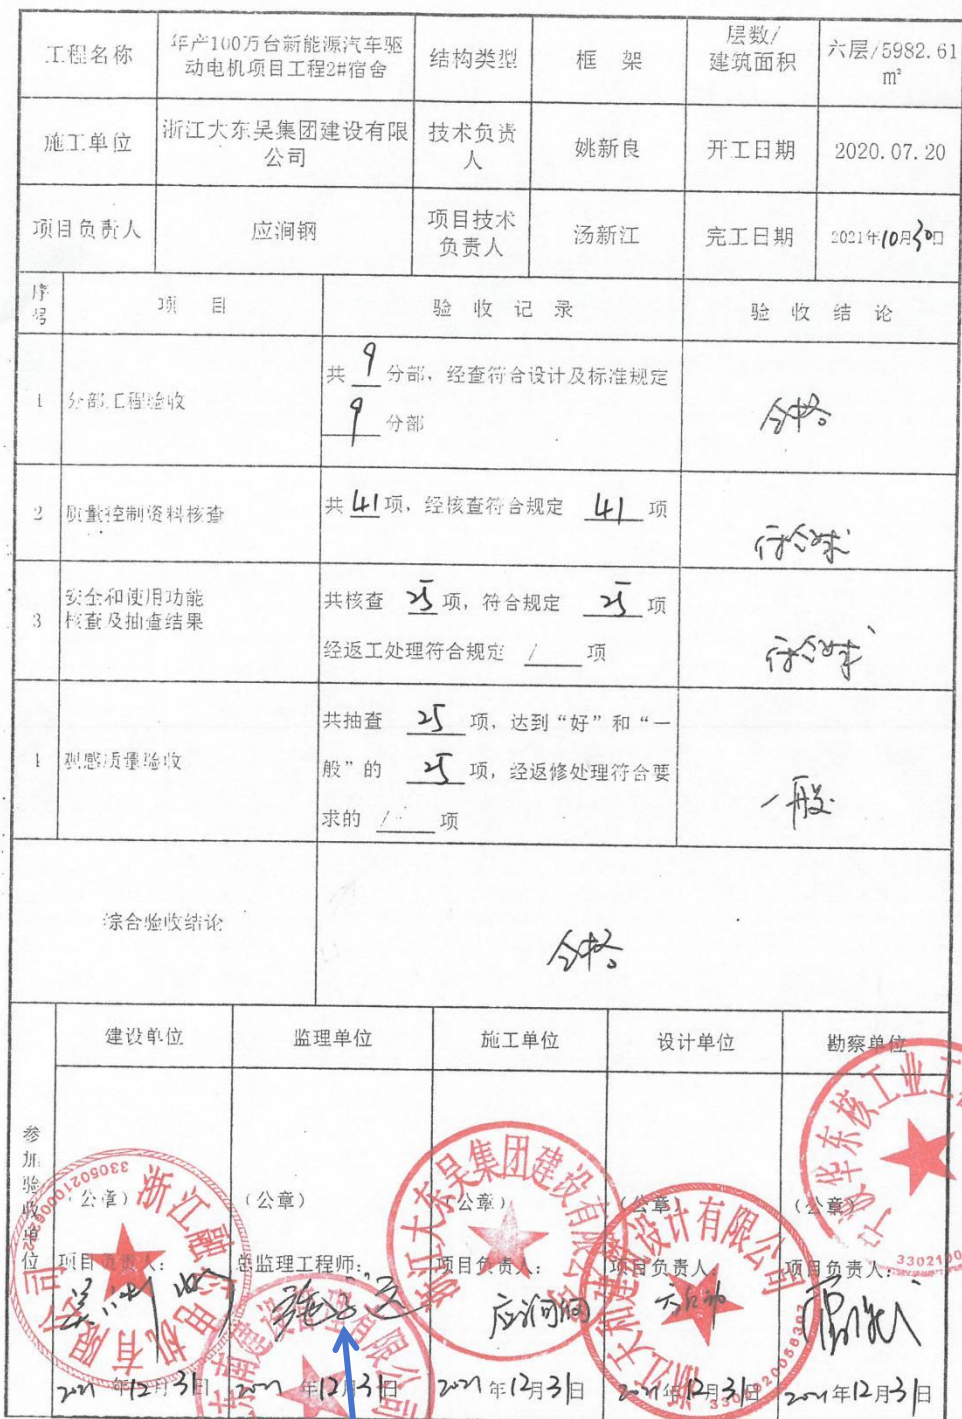 工程名称
年产100万台新能源汽车驱
动电机项目工程2#宿舍
结构类型
框 架
层数/
建筑面积
六层/5982.61
m²
施工单位
浙江大东吴集团建设有限
公司
技术负责
人
姚新良
开工日期
2020.07.20
项目负责人
应涧钢
项目技术
负责人
汤新江
完工日期
2021年10月30日
序
号
项 目
验 收 记 录
验 收 结 论
1
分部工程验收
共 9 分部，经查符合设计及标准规定
9 分部
合格
2
质量控制资料核查
共 41 项，经核查符合规定 41 项
符合要求
3
安全和使用功能
核查及抽查结果
共核查 25 项，符合规定 25 项
经返工处理符合规定 / 项
符合要求
4
观感质量验收
共抽查 25 项，达到“好”和“一
般”的 25 项，经返修处理符合要
求的 / 项
一般
综合验收结论
合格
参
加
验
收
单
位
建设单位
监理单位
施工单位
设计单位
勘察单位
（公章）
（公章）
（公章）
（公章）
（公章）
项目负责人：
总监理工程师：
项目负责人：
项目负责人
项目负责人：
应涧钢
2021年12月31日
2021年12月31日
2021年12月31日
2021年12月31日
2021年12月31日
浙江大东吴集团建设有限公司